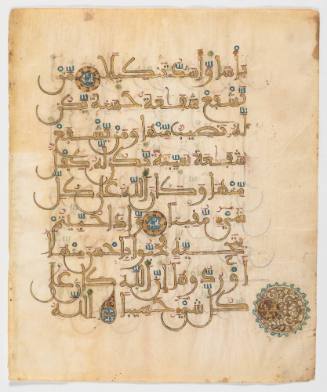 بأسا وأشد تنكيلا من
يشفع شفعة حسنة يكن
له نصيب منها ومن يشفع
شفعة سيئة يكن له كفل
منها وكان الله على كل
شىء مقيتا وإذا حييتم
بتحية فحيوا بأحسن منها
أو ردوها إن الله كان على
كل شىء حسيبا الله